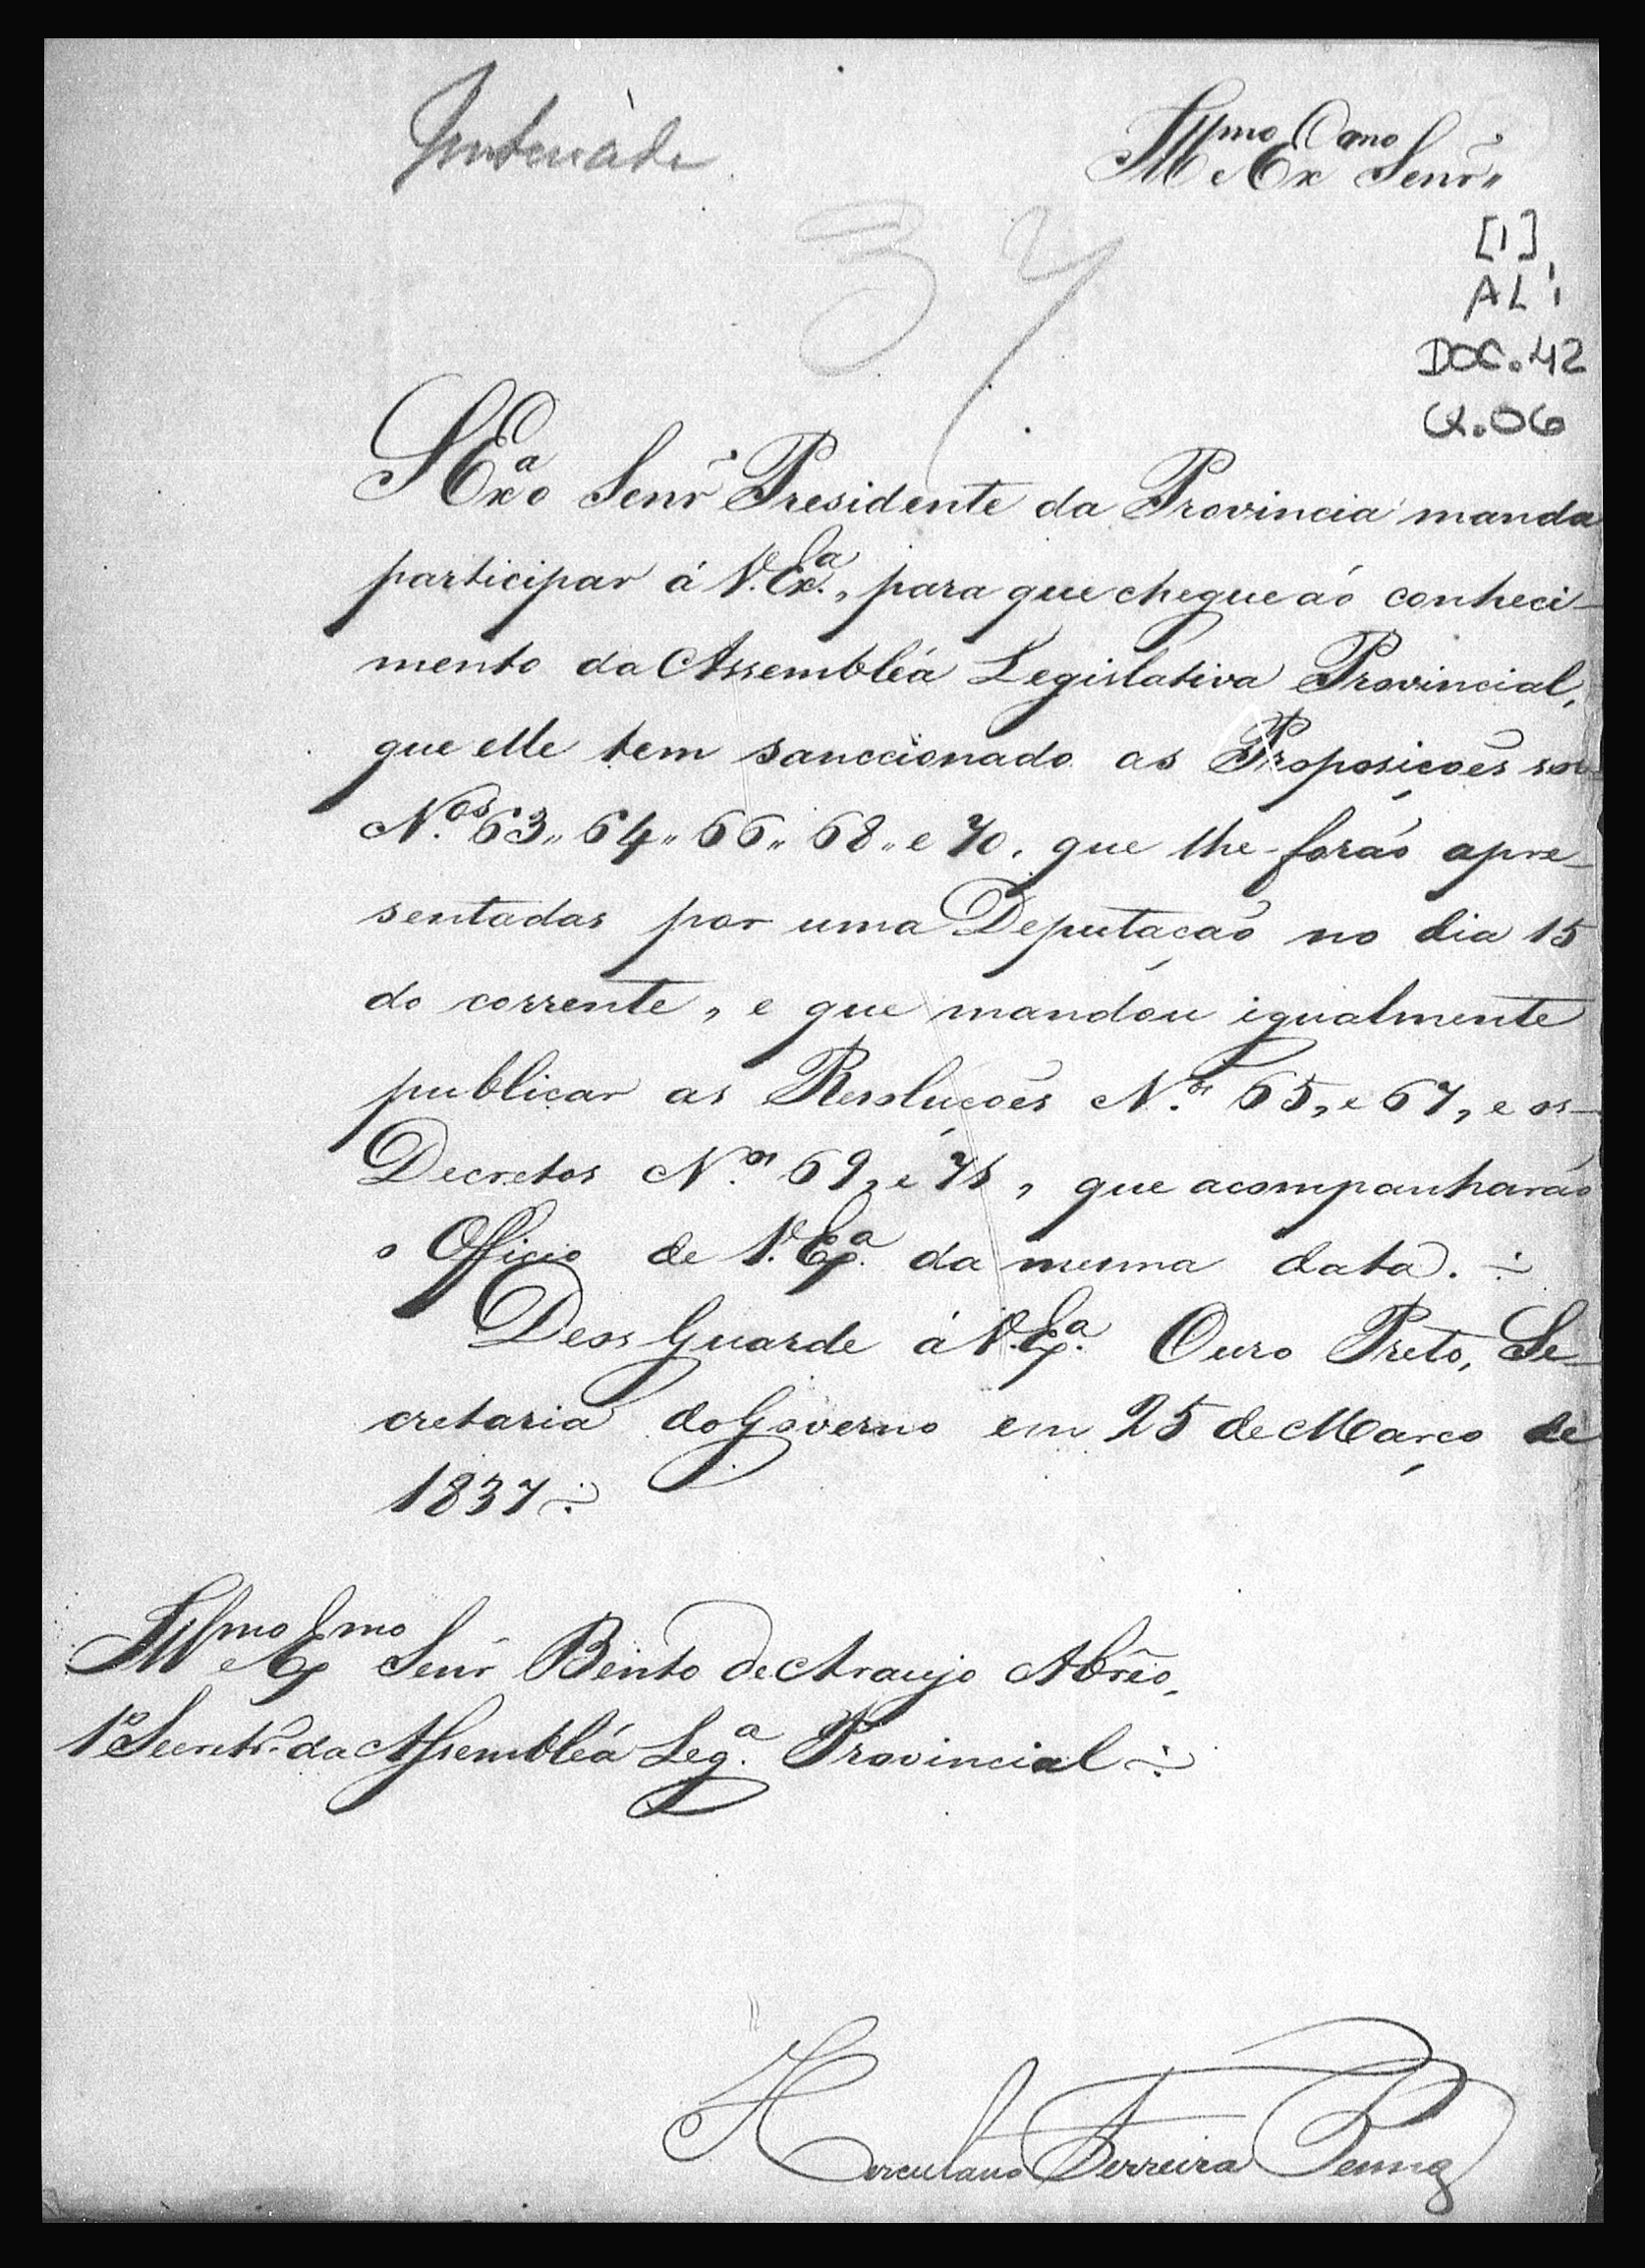 Inteirada
Illmo e Exmo Senr"
37
[1]
AL 1
DOC. 42
CX. 06
S Exa o Senr Presidente da Provincia manda
participar á V. Exa., para que chegue áo conheci-
mento da Assembléa Legislativa Provincial,
que elle tem sanccionado as Proposições sob
N.os 63,, 64,, 66,, 68,, e 70, que lhe forão apre-
sentadas por uma Deputação no dia 15
do corrente, e que mandou igualmente
publicar as Resoluções N.os 65, e 67, e os
Decretos N.os 69, e 71, que acompanharão
o Officio de V. Exa. da mesma data. ÷
Deos Guarde á V. Exa. Ouro Preto, Se-
cretaria do Governo em 25 de Março de
1837 ÷
Illmo e Exmo Senr Bento de Araujo Abrêo,
1º Secretr.º da Assembléa Lega. Provincial ÷
Herculano Ferreira Penna